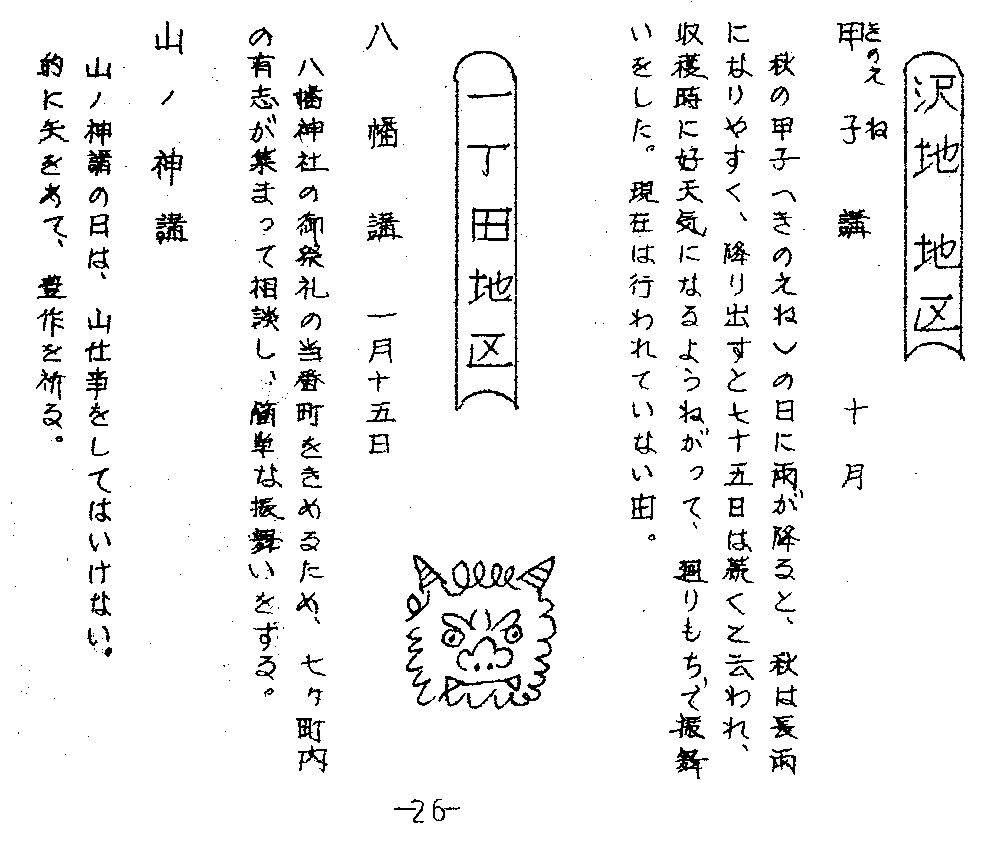 沢地地区
甲子講 十月
きのえ ね
秋の甲子(きのえね)の日に雨が降ると、秋は長雨
になりやすく、降り出すと七十五日は続くと云われ、
収穫時に好天気になるようねがって、廻りもちで振舞
いをした。現在は行われていない由。
一丁田地区
八幡講 一月十五日
八幡神社の御祭礼の当番町をきめるため、七ヶ町内
の有志が集まって相談し、簡単な振舞いをする。
山ノ神講
山ノ神講の日は、山仕事をしてはいけない。
的に矢をあて、豊作を祈る。
-26-